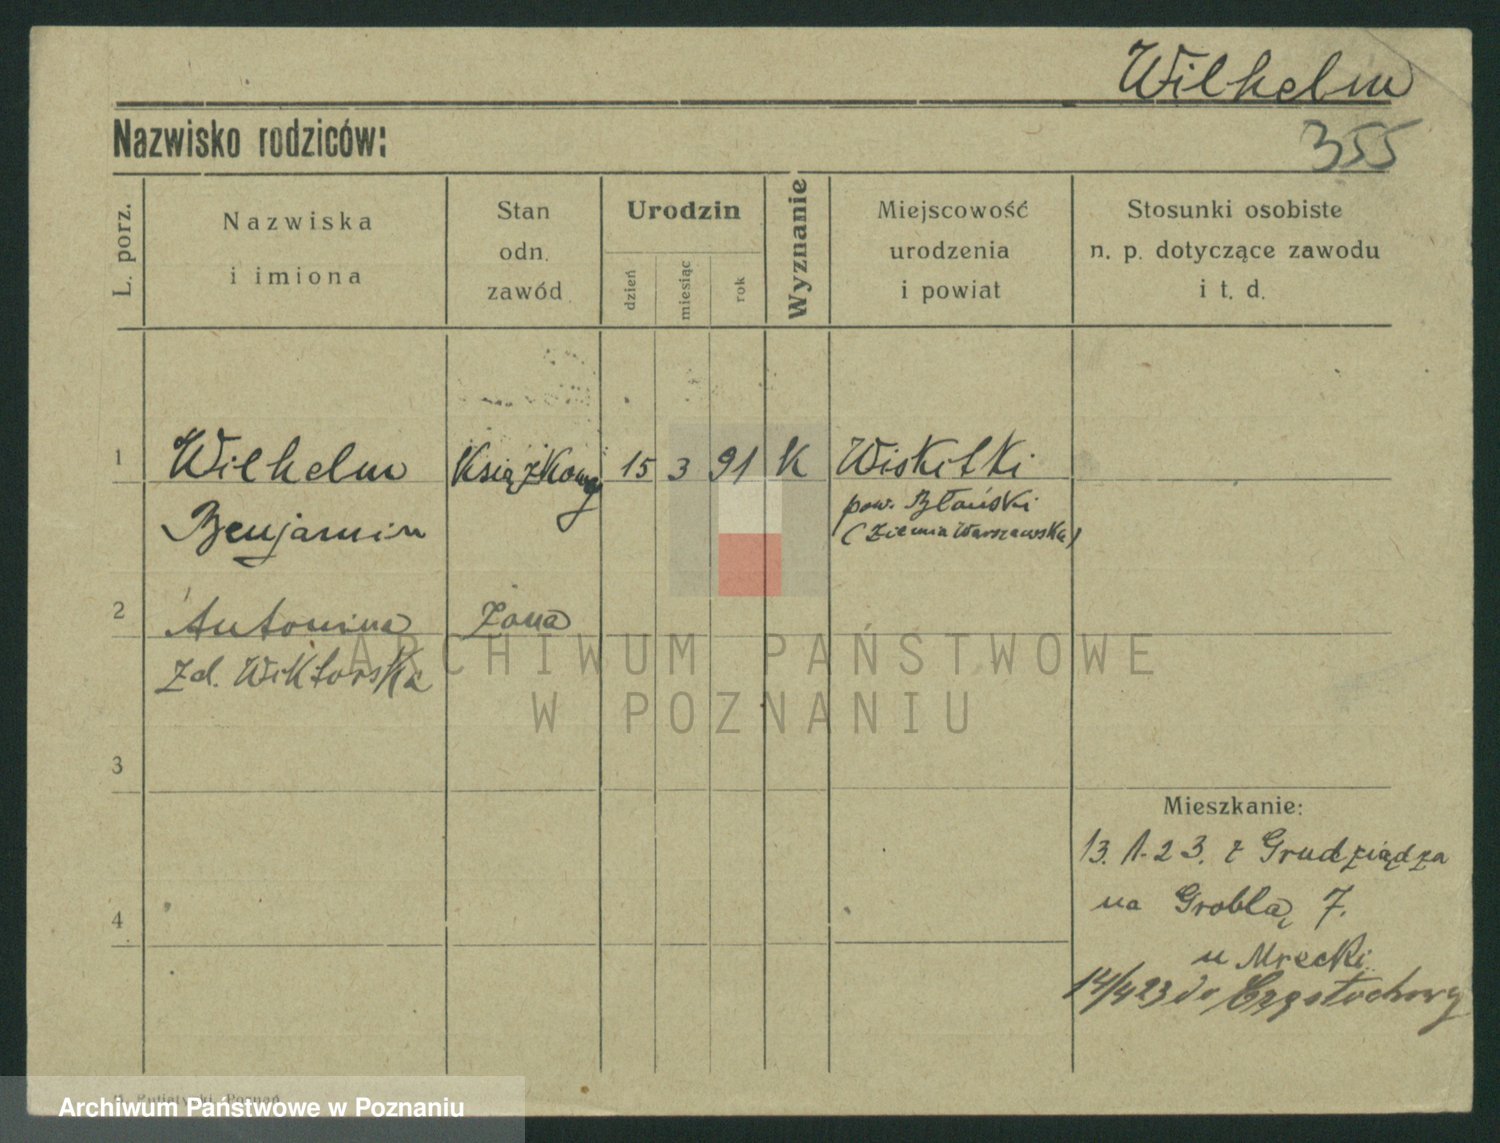 Wilhelm
Nazwisko rodziców:
355
L. porz.
Nazwiska
i imiona
Stan
odn.
zawód
Urodzin
dzień
miesiąc
rok
Wyznanie
Miejscowość
urodzenia
i powiat
Stosunki osobiste
n. p. dotyczące zawodu
i t. d.
1
Wilhelm
Książkowy
15
3
91
K
Wiskitki
Benjamin
pow. Błański
(Ziemia Warszawska)
2
Antonina
Żona
zd. Wiktorska
ARCHIWUM PAŃSTWOWE
W POZNANIU
3
4
Mieszkanie:
13. 1. 23. z Grudziądza
na Groblą 7.
u Mrecki
14/4 23 do Częstochowy
Poznań
Archiwum Państwowe w Poznaniu